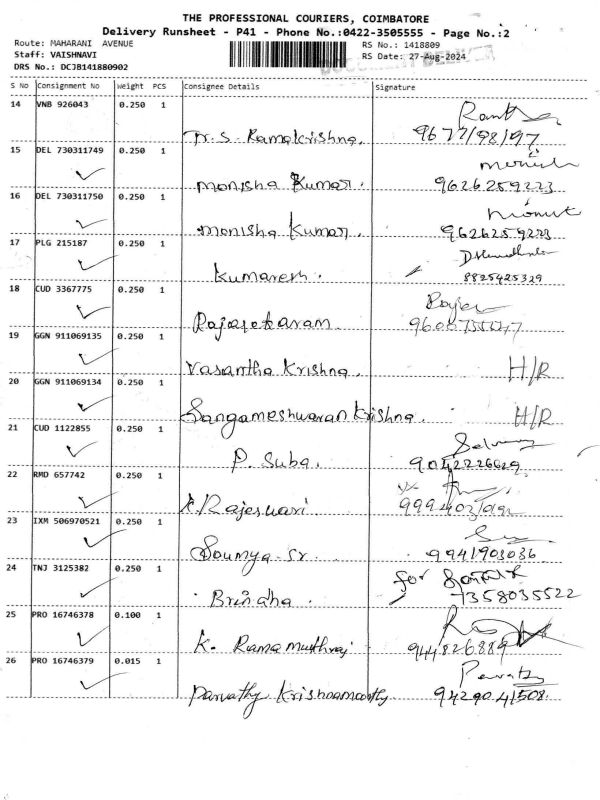 THE PROFESSIONAL COURIERS, COIMBATORE
Delivery Runsheet - P41 - Phone No.:0422-3505555 - Page No.:2
Route: MAHARANI AVENUE RS No.: 1418809
Staff: VAISHNAVI RS Date: 27-Aug-2024
DRS No.: DCJB141880902
S No Consignment No Weight PCS Consignee Details Signature
14 VNB 926043 0.250 1
Ramakrishna.
15 DEL 730311749 0.250 1
monisha Kumar. 9626259223
16 DEL 730311750 0.250 1
monisha Kumar. 9626259223
17 PLG 215187 0.250 1
Kumaresh. 8825425329
18 CUD 3367775 0.250 1
19 GGN 911069135 0.250 1
Vasantha Krishna. H/R
20 GGN 911069134 0.250 1
Sangameshwaran Krishna. H/R
21 CUD 1122855 0.250 1
P. Suba. 9042226629
22 RMD 657742 0.250 1
Rajeswari
23 IXM 506970521 0.250 1
Soumya Sr. 9941903036
24 TNJ 3125382 0.250 1 for
Brindha 7358035522
25 PRO 16746378 0.100 1
K. 944826889
26 PRO 16746379 0.015 1
Parvathy Krishnamoorthy 9429041508